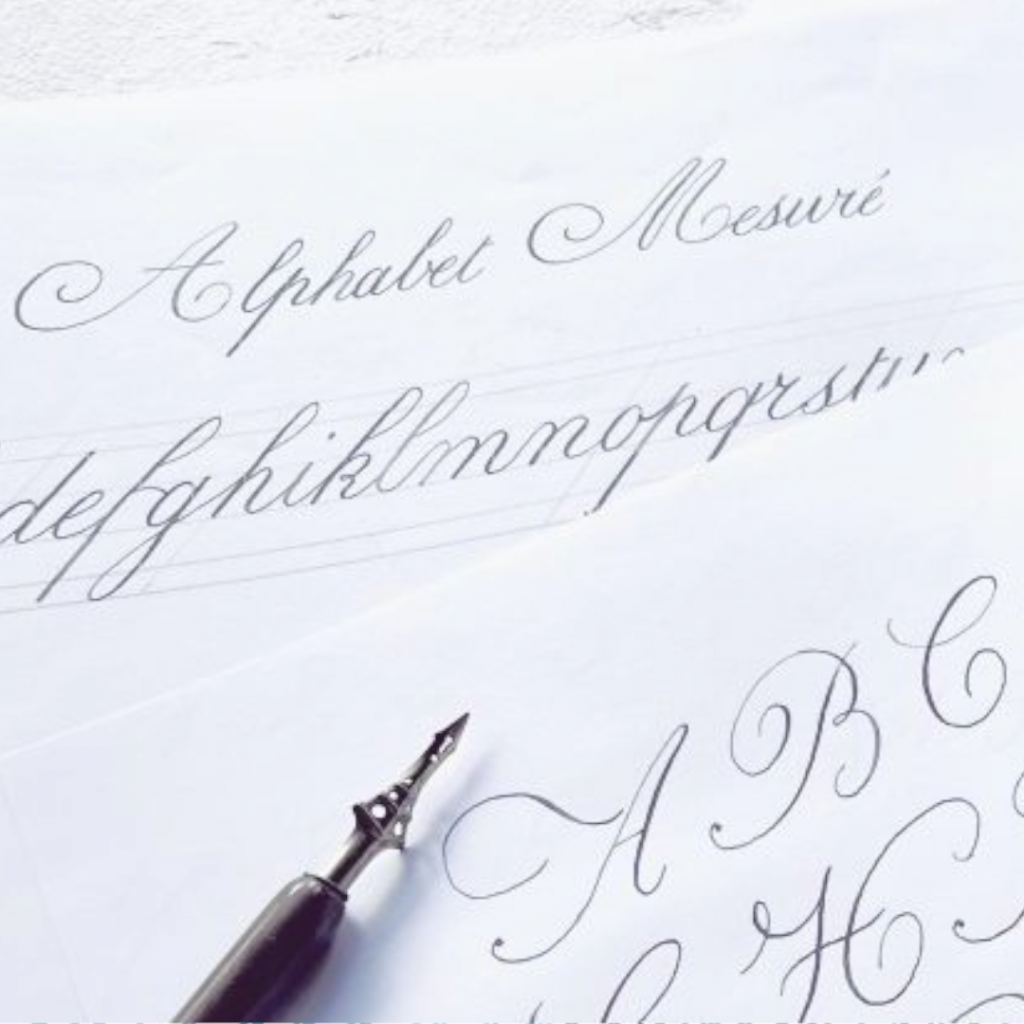 Alphabet Mesuré
defghiklmnopqrstu
A B C
H